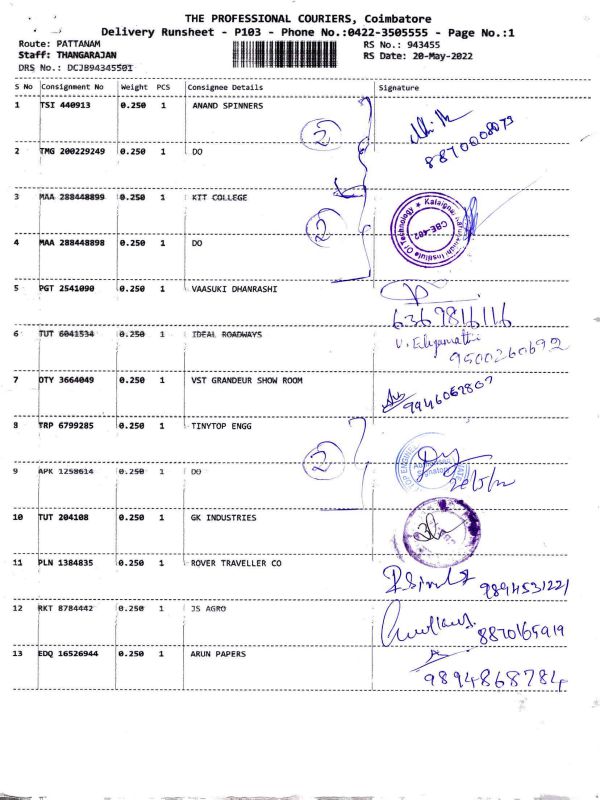 THE PROFESSIONAL COURIERS, Coimbatore
Delivery Runsheet - P103 - Phone No.:0422-3505555 - Page No.:1
Route: PATTANAM RS No.: 943455
Staff: THANGARAJAN RS Date: 20-May-2022
DRS No.: DCJB94345501
S No Consignment No Weight PCS Consignee Details Signature
1 TSI 440913 0.250 1 ANAND SPINNERS
2
8870008073
2 TMG 200229249 0.250 1 DO
3 MAA 288448899 0.250 1 KIT COLLEGE
2
Kalaignar Karunanidhi Institute Of Technology CBE-402
4 MAA 288448898 0.250 1 DO
5 PGT 2541090 0.250 1 VAASUKI DHANRASHI
6369816116
6 TUT 6041534 0.250 1 IDEAL ROADWAYS
9500260692
7 OTY 3664049 0.250 1 VST GRANDEUR SHOW ROOM
9946062807
8 TRP 6799285 0.250 1 TINYTOP ENGG
2
9 APK 1258614 0.250 1 DO
20/5/22
10 TUT 204108 0.250 1 GK INDUSTRIES
11 PLN 1384835 0.250 1 ROVER TRAVELLER CO
9894531221
12 RKT 8784442 0.250 1 JS AGRO
8870165919
13 EDQ 16526944 0.250 1 ARUN PAPERS
9894868784